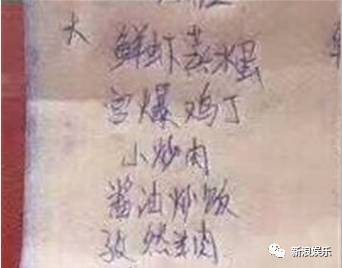 大
鲜虾蒸水蛋
宫爆鸡丁
小炒肉
酱油炒饭
孜然羊肉
新浪娱乐